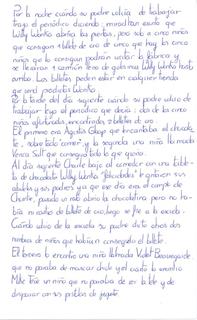 Por la noche cuando su padre volvió de trabajar
trajo el periódico diciendo: miradlo escrito que
Willy Wonka abriría las puertas, pero solo a cinco niños
que consigan billete de oro de cinco que hay los cinco
niños que lo consigan podrán visitar la fabrica y
se llevaran 1 camión lleno de golosinas Willy Wonka
Los billetes pueden estar en cualquier tienda
que venda productos Wonka.
Por la tarde del día siguiente cuando su padre volvió de
trabajar trajo el periodico que decía: dos de los cinco
niños afortunados, encontrados 2 billetes de oro.
El primero era Agustus Gloop que le encantaba el chocola
te, sobre todo comer y la segunda una niña llamada
Veruca Salt que conseguía todo lo que quería.
Al día siguiente Charlie bajo al comedor con una table
ta de chocolate Willy Wonka le gritaron sus
abuelos y sus padres ya que ese día era el cumple de
Charlie, cuando un rato abrió la chocolatina pero no ha
bía ni rastro de billete de oro, luego se fue a la escuela.
Cuando volvió de la escuela su padre dicto otros dos
nombres de niños que habían conseguido el billete.
El tercero lo encontro una niña llamada Violet Beauregarde
que no paraba de mascar chicle y el cuarto lo encontro
Mike Tevé un niño que no paraba de ver la tele y de
disparar con sus pistolas de juguete.